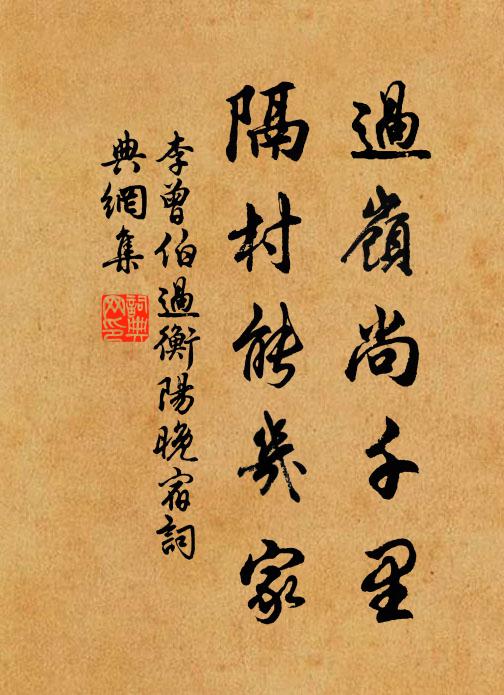 過嶺尚千里
隔村能幾家
李曾伯過衡陽晚宿詞
典網集
詞典網印